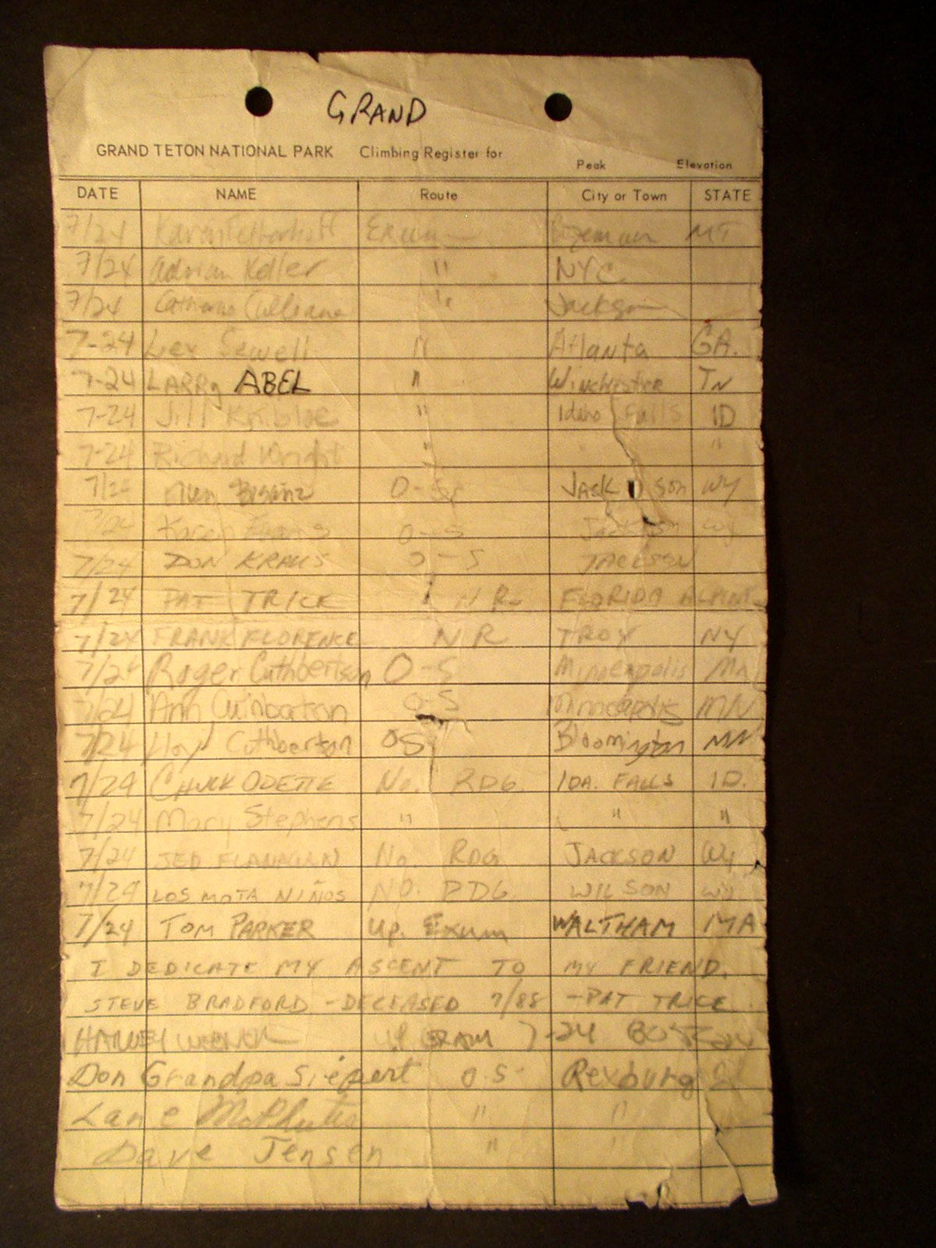 GRAND
GRAND TETON NATIONAL PARK Climbing Register for Peak Elevation
DATE NAME Route City or Town STATE
7/24 Exum Bozeman MT
7/24 Adrian Keller " NYC.
7/24 Catherine Cullinane " Jackson
7-24 Lex Sewell " Atlanta GA.
7-24 LARRY ABEL " Winchester TN
7-24 Jill " Idaho Falls ID
7-24 Richard Wright " " "
7/24 O-S JACKSON WY
7/24 Karen O-S Jackson WY
7/24 DON KRAUS O-S JACKSON
7/24 PAT TRICE N R. FLORIDA
7/24 FRANK FLORENCE NR TROY NY
7/24 Roger Cuthbertson O-S Minneapolis MN
7/24 Ann Cuthbertson O-S Minneapolis MN
7/24 Cuthbertson OS Bloomington MN
7/24 CHUCK ODETTE No. RDG. IDA. FALLS ID.
7/24 Mary Stephens " " "
7/24 JED FLANAGAN No. RDG JACKSON WY
7/24 LOS MOTA NIÑOS NO. RDG. WILSON WY
7/24 TOM PARKER Up. Exum WALTHAM MA
I DEDICATE MY ASCENT TO MY FRIEND.
STEVE BRADFORD - DECEASED 7/88 - PAT TRICE
7-24
Don Grandpa Siepert O-S- Rexburg
Lane " "
Dave Jensen " "